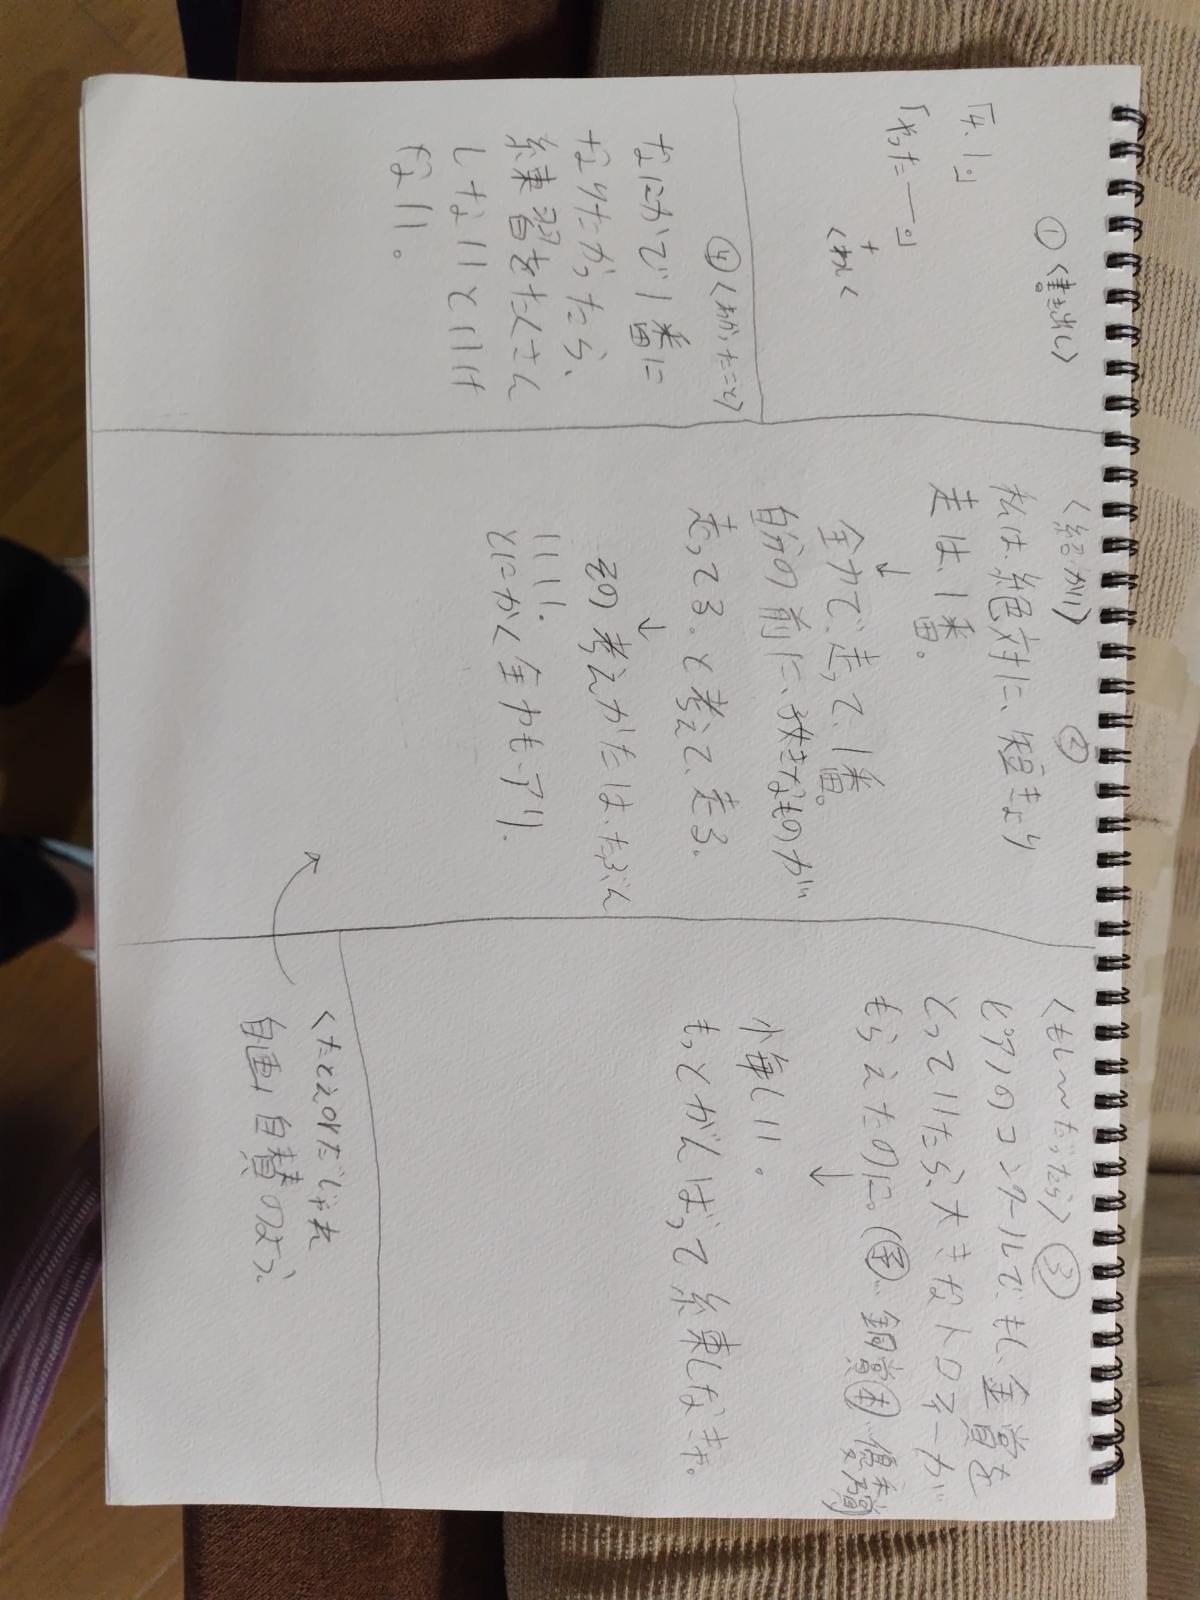 ①〈書き出し〉
「よーい。」
「やったー。」
＋
くわしく
〈絶対〉②
私は、絶対に、短きょり
走は、1番。
↓
全力で、走って、1番。
自分の前に、好きなものが
走ってる。と考えて、走る。
↓
その考えかたは、たぶん
いい。
とにかく全力も、アリ。
〈もし〜だったら〉③
ピアノのコンクールでもし、金賞を
とっていたら、大きなトロフィーが
もらえたのに。(金…銅賞 優秀賞)
↓
小悔しい。
もっとがんばって練しなきゃ。
④〈わかったこと〉
なにかで1番に
なりたかったら、
練習をたくさん
しないといけ
ない。
〈たとえのだじゃれ
自画自賛のよう。